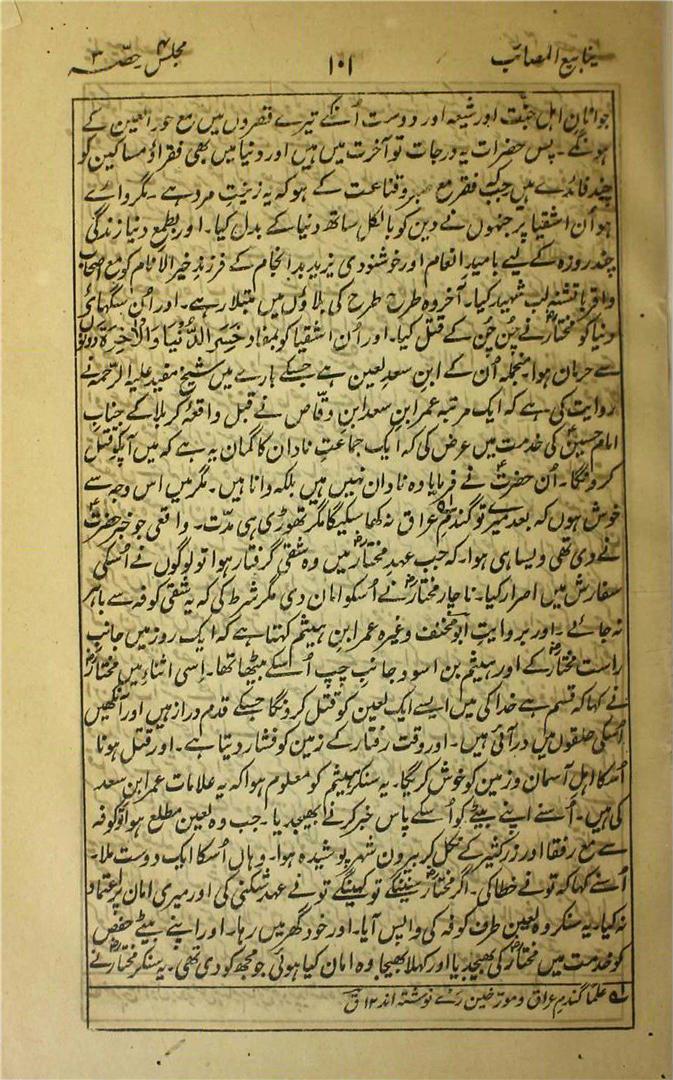 ینابیع المصائب
۱۰۱
مجلس ۴ حصّہ ۳
جوانانِ اہل جنت اور شیعہ اور دوست اُنکے تیرے قصروں میں مع حور العین کے
ہونگے۔ پس حضرات یہ درجات تو آخرت میں ہیں اور دنیا میں بھی فقراؤ مساکین کو
چند فائدے ہیں جبکہ فقر مع صبر و قناعت کے ہو کہ یہ زینتِ مرد ہے۔ مگر واے
ہو اُن اشقیا پر جنہوں نے دین کو بالکل ساتھ دنیا کے بدل کیا۔ اور بطمع دنیا زندگی
چند روزہ کے لیے بامیدِ انعام اور خوشنودی یزید بد انجام کے فرزندِ خیر الانام کو مع اصحاب
و اقربا تشنہ لب شہید کیا۔ آخر وہ طرح طرح کی بلاؤں میں مبتلا رہے۔ اور اُن سگہائے
دنیا کو مختارؓ نے چُن چُن کے قتل کیا۔ اور اُن اشقیا کو بمفاد خَسِرَ الدُّنْیَا وَالْاٰخِرَۃ دونوں
سے حرمان ہوا منجملہ اُن کے ابن سعدِ لعین ہے جسکے بارے میں شیخ مفید علیہ الرحمہ نے
روایت کی ہے کہ ایک مرتبہ عمر ابن سعد ابن وقاص نے قبل واقعۂ کربلا کے جنابِ
امام حسینؑ کی خدمت میں عرض کی کہ ایک جماعتِ نادان کا گمان یہ ہے کہ میں آپکو قتل
کرونگا۔ اُن حضرتؑ نے فرمایا وہ نادان نہیں ہیں بلکہ دانا ہیں۔ مگر میں اس وجہ سے
خوش ہوں کہ بعد میرے تو گندمِ عراق نہ کھا سکیگا مگر تھوڑی ہی مدّت۔ واقعی جو خبر حضرتؑ
نے دی تھی ویسا ہی ہوا۔ کہ جب عہدِ مختارؓ میں وہ شقی گرفتار ہوا تو لوگوں نے اُسکی
سفارش میں اصرار کیا۔ ناچار مختارؓ نے اُسکو امان دی مگر شرط کی کہ یہ شقی کوفہ سے باہر
نہ جائے۔ اور بروایتِ ابو مخنف وغیرہ عمر ابن ہیثم کہتا ہے کہ ایک روز میں جانبِ
راست مختارؓ کے اور ہیثم بن اسود جانب چپ اُسکے بیٹھا تھا۔ اِسی اثناء میں مختارؓ
نے کہا کہ قسم ہے خدا کی میں ایسے ایک لعین کو قتل کرونگا جسکے قدم دراز ہیں اور آنکھیں
اُسکی حلقوں میں در آئی ہیں۔ اور وقت رفتار کے زمین کو فشار دیتا ہے۔ اور قتل ہونا
اُسکا اہل آسمان و زمین کو خوش کریگا۔ یہ سنکر ہیثم کو معلوم ہوا کہ یہ علامات عمر ابن سعد
کی ہیں۔ اُسنے اپنے بیٹے کو اُسکے پاس خبر کرنے بھیجدیا۔ جب وہ لعین مطلع ہوا تو کوفہ
سے مع رفقا اور زرِ کثیر کے نکل کر بیرونِ شہر پوشیدہ ہوا۔ وہاں اُسکا ایک دوست ملا۔
اُسنے کہا کہ تونے خطا کی۔ اگر مختارؓ سنینگے تو کہینگے تونے عہد شکنی کی اور میری امان پر اعتماد
نہ کیا۔ یہ سنکر وہ لعین طرف کوفہ کی واپس آیا۔ اور خود گھر میں رہا۔ اور اپنے بیٹے حفص
کو خدمت میں مختارؓ کی بھیجدیا اور کہلا بھیجا وہ امان کیا ہوئی جو مجھ کو دی تھی۔ یہ سنکر مختارؓ نے
علما گندمِ عراق و مورخین رے نوشتہ اند ۱۲ ق